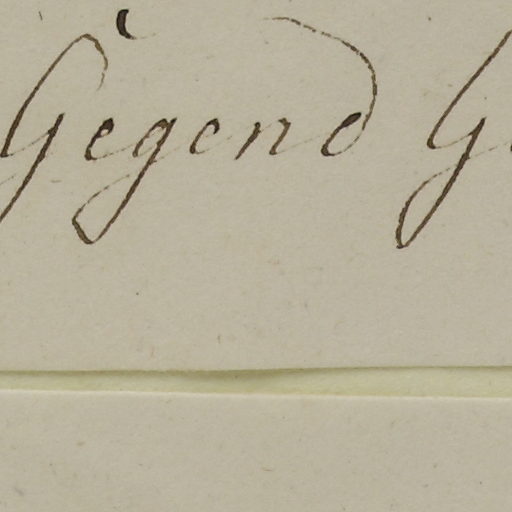 Gegend G